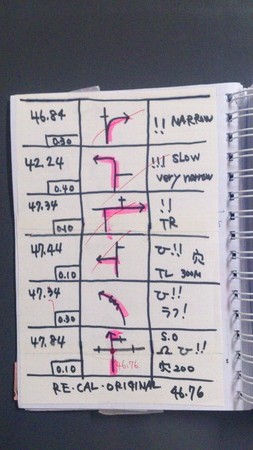 46.84
0.30
!! NARROW
42.24
0.40
!!! SLOW
very narrow
47.34
0.10
!!
TR
47.44
0.10
ひ!! 穴
TL 300M
47.34
0.30
ひ!!
ラフ!
47.84
0.10
46.76
S.O
Ω ひ!!
穴 200
RE・CAL・ORIGINAL 46.76